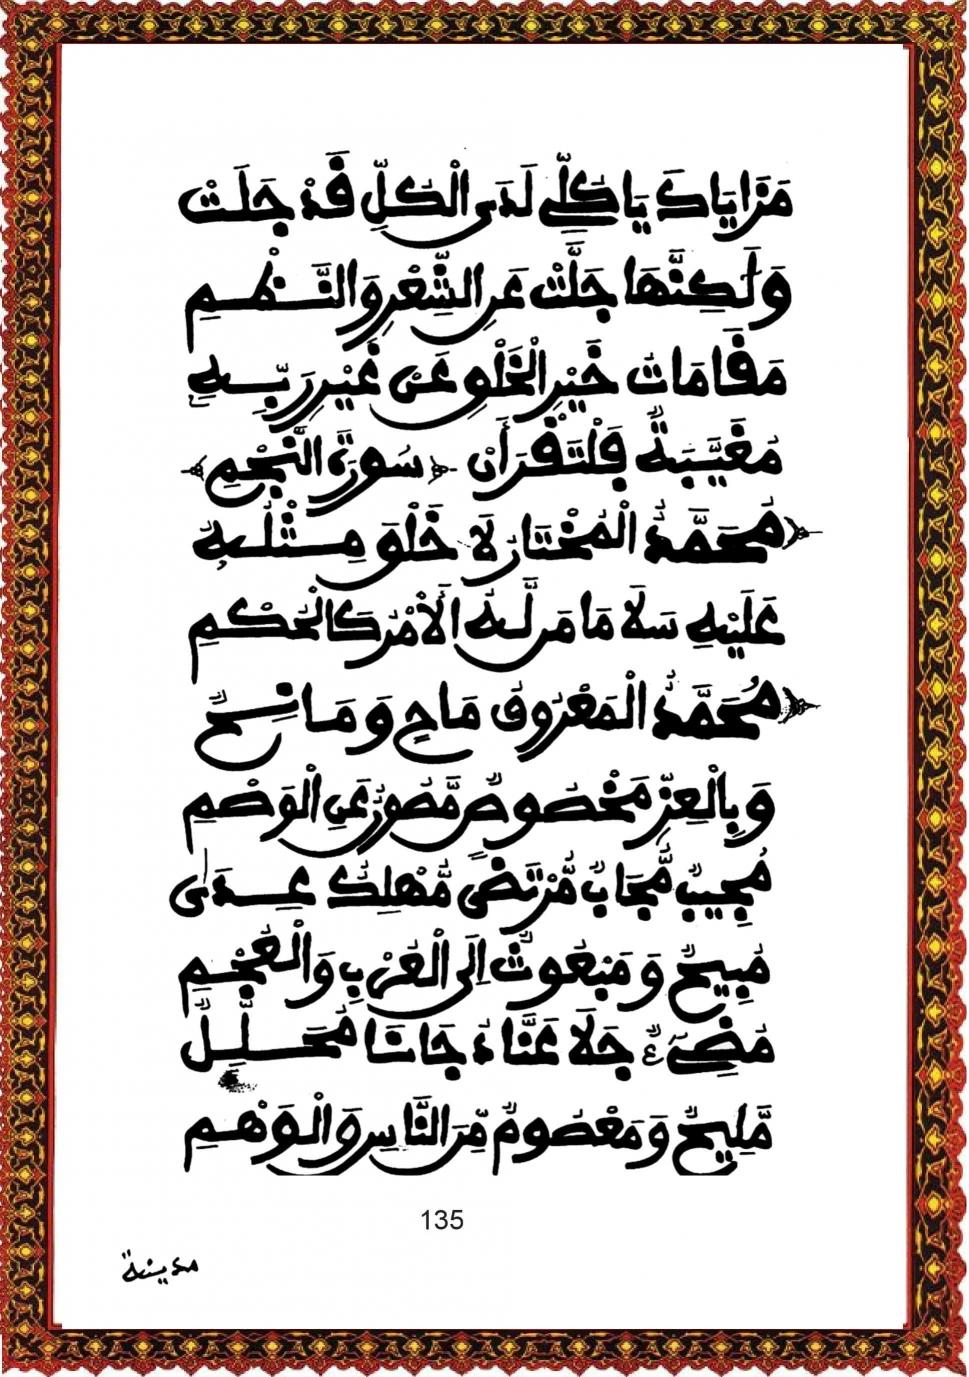 مَزَايَاكَ يَا كُلِّي لَدَى الْكُلِّ قَدْ جَلَتْ
وَلَكِنَّهَا جَلَّتْ عَنِ الشِّعْرِ وَالنَّظْمِ
مَقَامَاتُ خَيْرِ الْخَلْقِ عَنْ غَيْرِ رَبِّهِ
مُغَيَّبَةٌ فَلْتَقْرَأَنْ سُورَةَ النَّجْمِ
مُحَمَّدٌ الْمُخْتَارُ لَا خَلْقَ مِثْلُهُ
عَلَيْهِ سَلَامَا مَن لَّهُ الْأَمْرُ كَالْحُكْمِ
مُحَمَّدٌ الْمَعْرُوفُ مَاحٍ وَمَانِحٌ
وَبِالْعِزِّ مَخْصُوصٌ مَّصُونٌ عَنِ الْوَصْمِ
مُجِيبٌ مُّجَابٌ مُّرْتَضًى مُّهْلِكُ عِدًى
مُبِيحٌ وَمَبْعُوثٌ إِلَى الْعُرْبِ وَالْعُجْمِ
مُضِيءٌ جَلَا عَنَّا دُجَانَا مُحَلِّلٌ
مَّلِيحٌ وَمَعْصُومٌ مِّنَ النَّاسِ وَالْوَهْمِ
135
مدينة